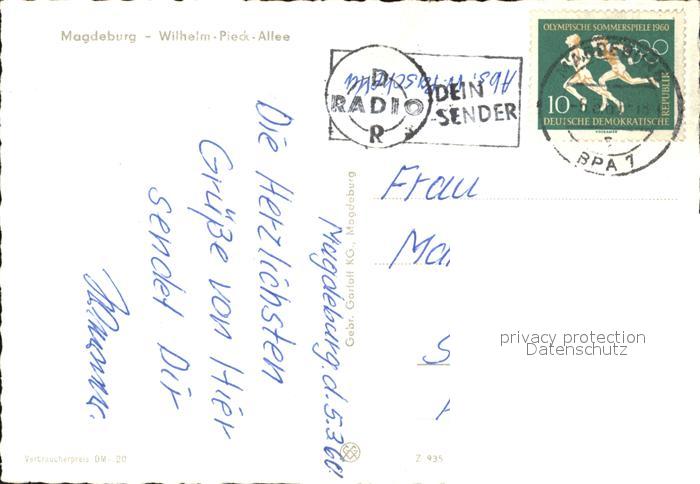 Magdeburg - Wilhelm-Pieck-Allee
OLYMPISCHE SOMMERSPIELE 1960
10
DEUTSCHE DEMOKRATISCHE
REPUBLIK
MAGDEBURG
BPA 1
D
RADIO
R
DEIN
SENDER
Abs.
Magdeburg. d. 5.3.60.
Die Herzlichsten
Grüße von Hier
sendet Dir
Gebr. Garloff KG., Magdeburg
Frau
Ma
S
privacy protection
Datenschutz
Verbraucherpreis DM -.20
Z 935